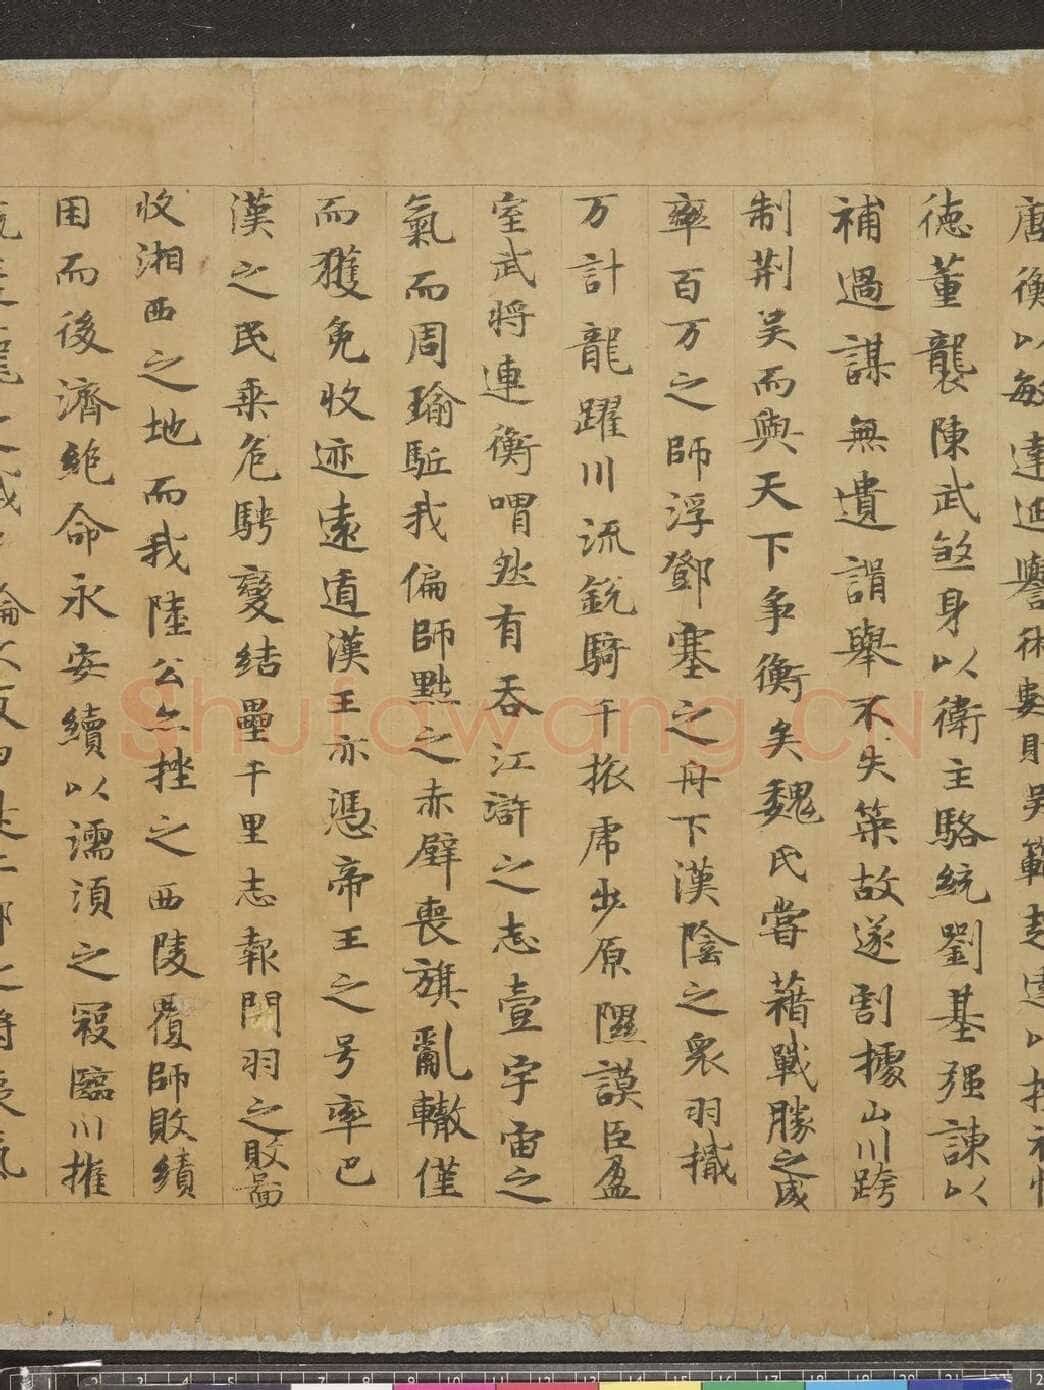 衡以敏達延譽術數則吳範趙達以
徳董襲陳武煞身以衛主駱統劉基强諫以
補過謀無遺諝舉不失筞故遂割據山川跨
制荆吴而與天下争衡矣魏氏嘗藉戰勝之威
率百万之師浮鄧塞之舟下漢陰之衆羽檝
万計龍躍川流銳騎千振虎步原隰謨臣盈
室武将連衡喟然有吞江滸之志壹宇宙之
氣而周瑜駈我偏師黜之赤壁喪旗亂轍僅
而獲免收迹遠遁漢王亦憑帝王之号率巴
漢之民乗危騁變結壘千里志報関羽之敗啚
收湘西之地而我陸公亦挫之西陵覆師敗績
困而後濟絶命永安續以濡湏之寇臨川摧
Shufawang.CN